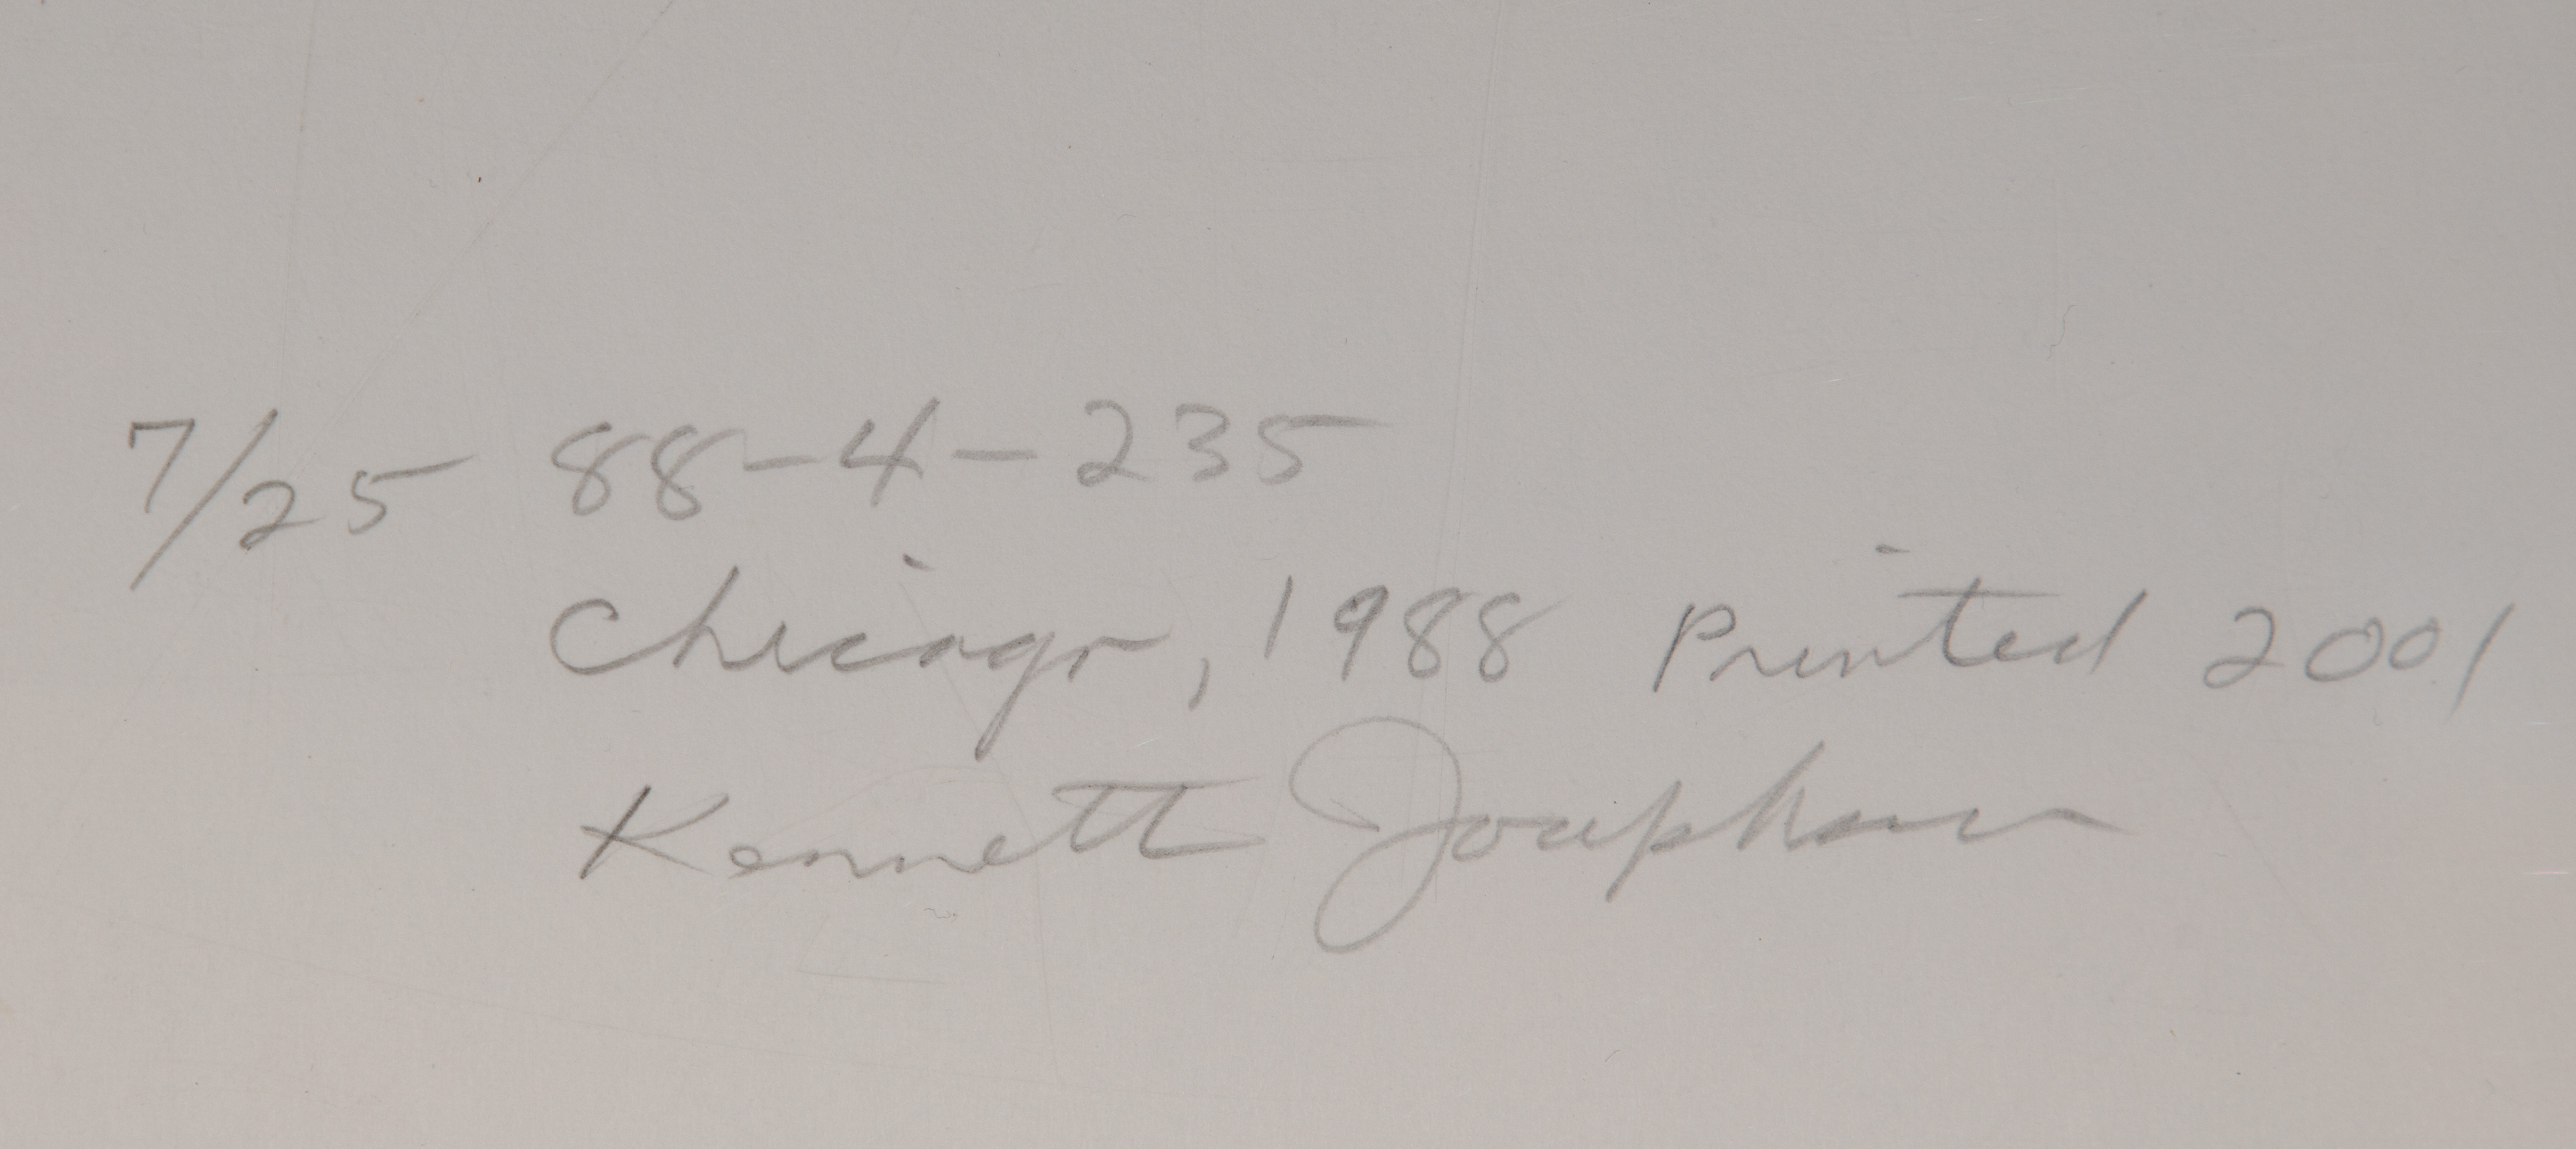 7/25 88-4-235
Chicago, 1988 Printed 2001
Kenneth Josephson